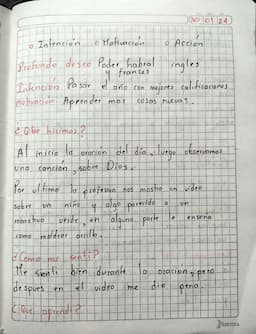 30 01 24
o Intención o Motivación o Acción
Profundo deseo Poder hablar ingles
y frances
Intencion Pasar el año con mejores calificaciones
Motivacion: Aprender mas cosas nuevas.
¿Qué hicimos?
Al inicio la oración del día, luego observamos
una canción, sobre Dios.
Por ultimo la profesora nos mostro un video
sobre un niño y algo parecido a un
monstruo verde, en alguna parte le enseña
como moldear arcilla.
¿Como me sentí?
Me sentí bien durante la oración, pero
despues en el video me dio pena.
¿Qué aprendí?